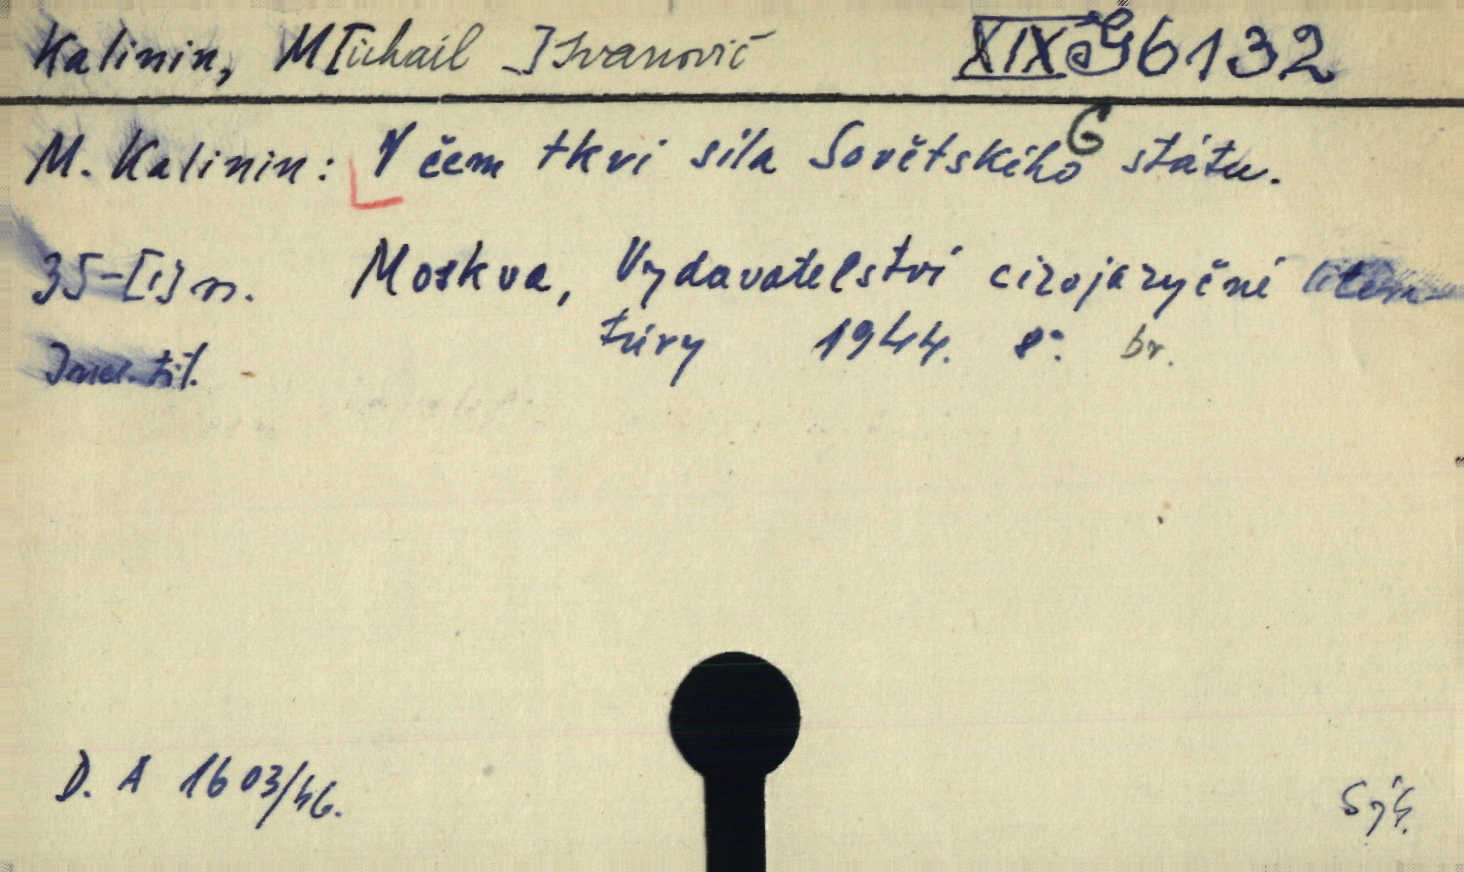 Kalinin, M[ichail] Ivanovič XIX G 6132
G
M. Kalinin: V čem tkví síla Sovětského státu.
35-[1] s. Moskva, Vydavatelství cizojazyčné litera-
túry 1944. 8°. br.
D. A 1603/46.